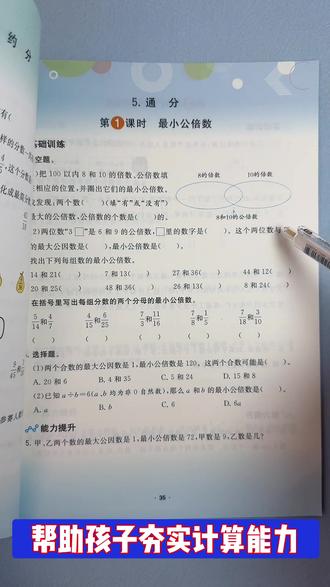 约 分
5. 通 分
第1课时 最小公倍数
基础训练
空题。
)把 100 以内 8 和 10 的倍数、公倍数填
相应的位置,并圈出它们的最小公倍数。
发现:两个数( )(填“有”或“没有”)
最大的公倍数,公倍数的个数是( )的。
8的倍数 10的倍数
8和10的公倍数
2)两位数“3□”是 6 和 9 的公倍数,□里的数字是( ),这个两位数与
的最大公因数是( ),最小公倍数是( )。
找出下列每组数的最小公倍数。
14 和 21( ) 7 和 13( ) 27 和 36( ) 44 和 12( )
20 和 25( ) 48 和 36( ) 26 和 13( ) 8 和 24( )
在括号里写出每组分数的两个分母的最小公倍数。
5/14和4/7 4/15和6/25 7/3和11/16 7/8和1/5 7/18和3/10
( ) ( ) ( ) ( ) ( )
选择题。
(1)两个合数的最大公因数是 1,最小公倍数是 120。这两个合数可能是( )。
A. 20 和 6 B. 4 和 35 C. 5 和 24 D. 15 和 8
(2)已知 a÷b=6(a、b 均为非 0 自然数),那么 a 和 b 的最小公倍数是( )。
A. a B. b C. 6 D. 6a
能力提升
5. 甲、乙两个数的最大公因数是 1,最小公倍数是 72,甲数是 9,乙数是几?
· 35 ·
帮助孩子夯实计算能力